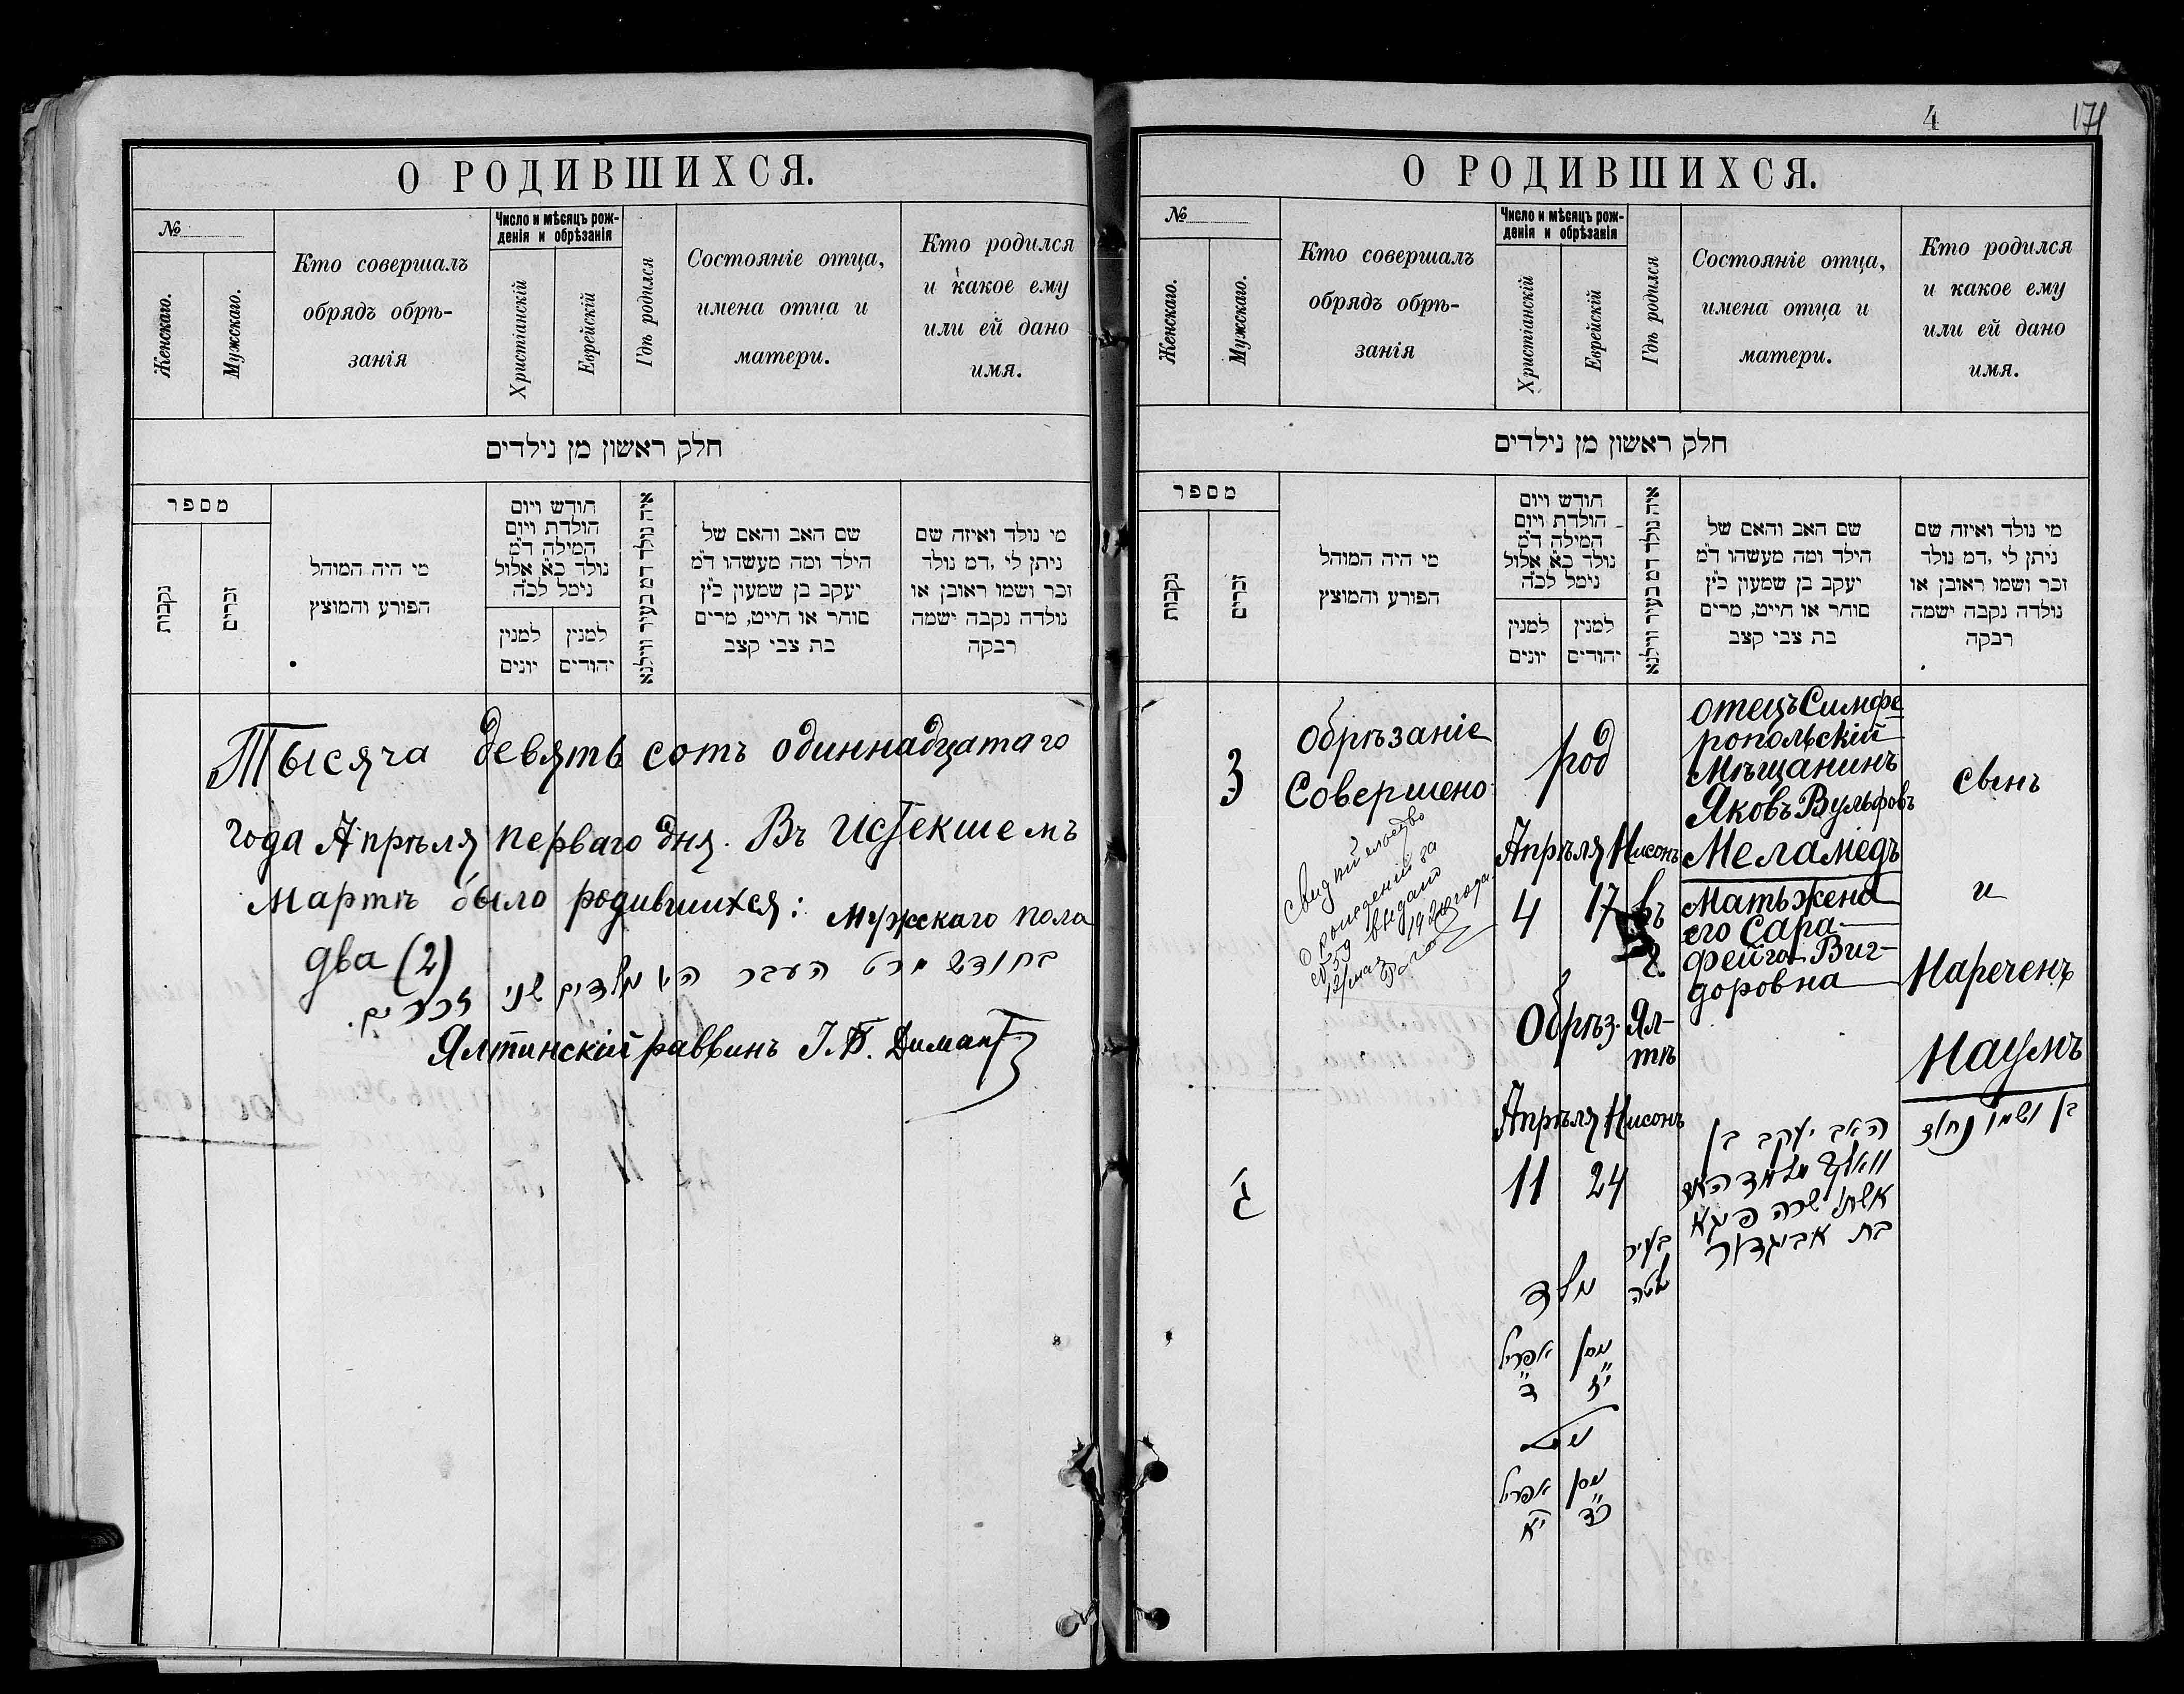 О РОДИВШИХСЯ.
№
Женскаго.
Мужскаго.
Кто совершалъ
обрядъ обрѣ-
занія
Число и мѣсяцъ рож-
денія и обрѣзанія
Христіанскій
Еврейскій
Гдѣ родился
Состояніе отца,
имена отца и
матери.
Кто родился
и какое ему
или ей дано
имя.
חלק ראשון מן נילדים
מספר
נקבות
זכרים
מי היה המוהל
הפורע והמוצץ
חודש ויום
הולדת ויום
המילה ד"מ
נולד כ"א אלול
נימל לכ"ה
למנין
יונים
למנין
יהודים
איה נולד דמ בעיר ווילנא
שם האב והאם של
הילד ומה מעשהו ד"מ
יעקב בן שמעון כ"ץ
סוחר או חייט, מרים
בת צבי קצב
מי נולד ואיזה שם
ניתן לי, דמ נולד
זכר ושמו ראובן או
נולדה נקבה ישמה
רבקה
Тысяча девять сотъ одиннадцатаго
года Апрѣля перваго дня. Въ истекшемъ
мартѣ было родившихся: мужскаго пола
два (2)
בחודש מרט העבר היו נולדים שני זכרים.
Ялтинскій раввинъ І. Б. Димант
4
171
О РОДИВШИХСЯ.
№
Женскаго.
Мужскаго.
Кто совершалъ
обрядъ обрѣ-
занія
Число и мѣсяцъ рож-
денія и обрѣзанія
Христіанскій
Еврейскій
Гдѣ родился
Состояніе отца,
имена отца и
матери.
Кто родился
и какое ему
или ей дано
имя.
חלק ראשון מן נילדים
מספר
נקבות
זכרים
מי היה המוהל
הפורע והמוצץ
חודש ויום
הולדת ויום
המילה ד"מ
נולד כ"א אלול
נימל לכ"ה
למנין
יונים
למנין
יהודים
איה נולד דמ בעיר ווילנא
שם האב והאם של
הילד ומה מעשהו ד"מ
יעקב בן שמעון כ"ץ
סוחר או חייט, מרים
בת צבי קצב
מי נולד ואיזה שם
ניתן לי, דמ נולד
זכר ושמו ראובן או
נולדה נקבה ישמה
רבקה
3
Обрѣзаніе
Совершено
Свидѣтельство
о рожденіи за
№ 59 выдано
12/мая 1920 года.
род
Апрѣля Нисонъ
4 17
Обрѣз.
Апрѣля Нисонъ
11 24
въ
г.
Ял-
тѣ
отецъ Симфе
ропольскій
мѣщанинъ
Яковъ Вульфовъ
Меламедъ
Мать жена
его Сара
Фейга Виг-
доровна
Сынъ
и
Нареченъ
Наумъ
ג'
נולד
ניסן אפריל
י"ז ד'
נימול
ניסן אפריל
כ"ד י"א
בעיר
ילטה
האב יעקב בן
וואלף מלמד האם
אשתו שרה פיגא
בת אביגדור
בן ושמו נחום